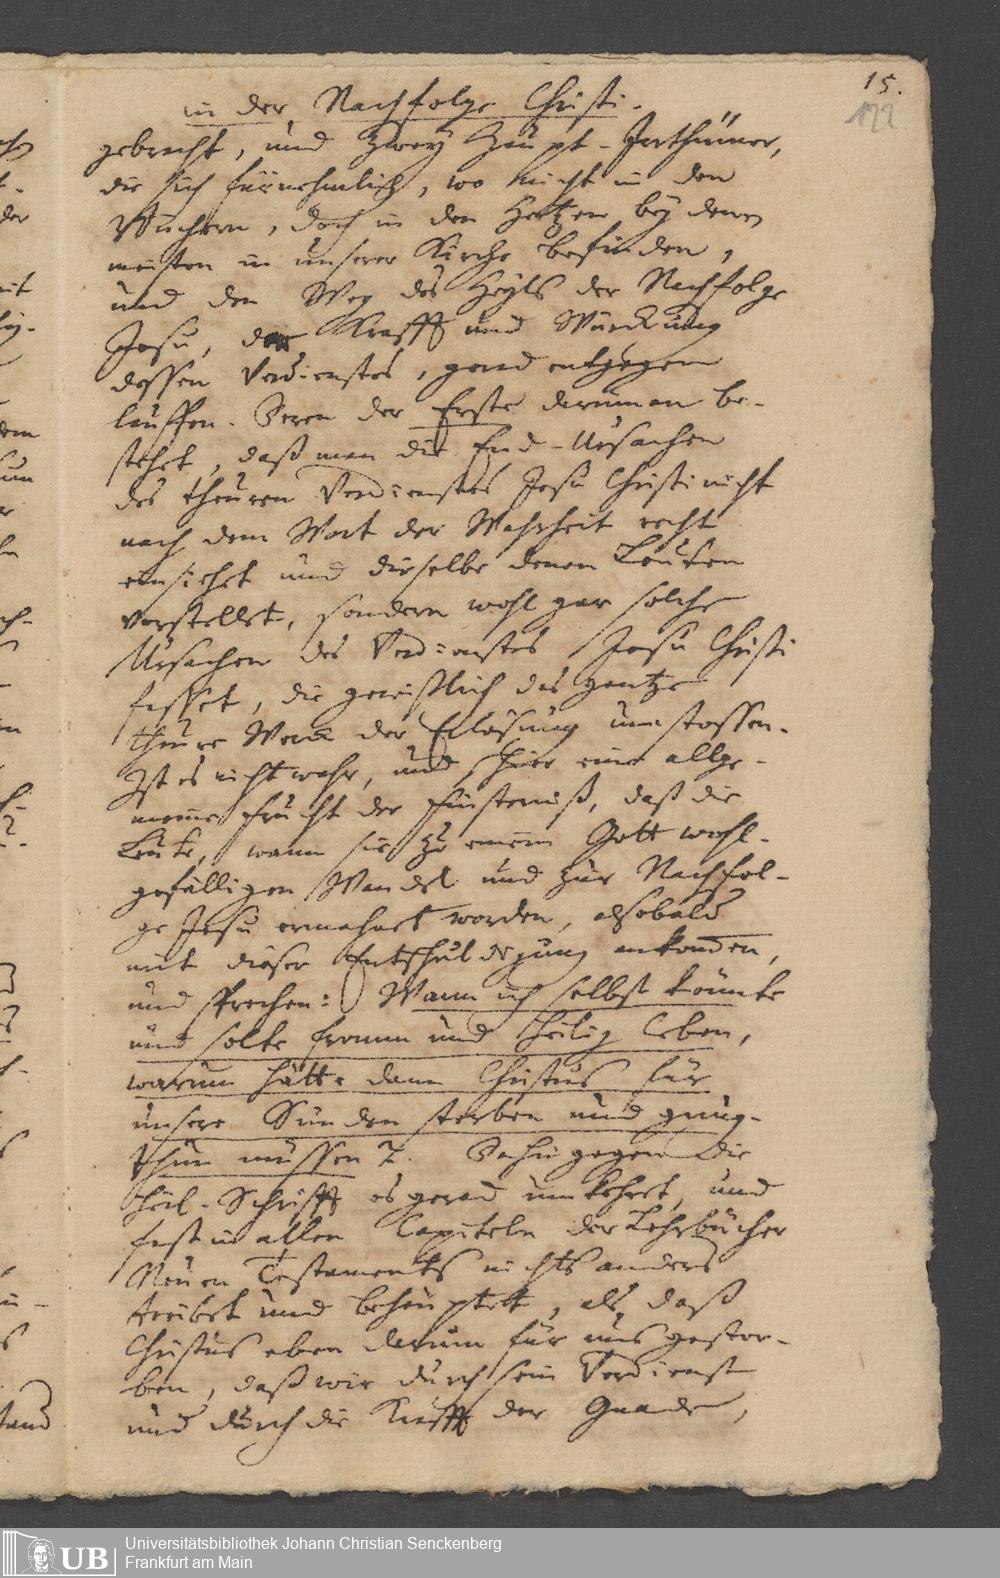 15.
122
in der Nachfolge Christi.
gebracht, und zwey Haupt-Irrthümer,
die sich fürnehmlich, wo nicht in den
Büchern, doch in den Hertzen bey denen
meisten in unserer Kirche befinden,
und den Weg des Heyls der Nachfolge
Jesu, der Krafft und Würckung
dessen Verdienstes, gerad entgegen
lauffen. Deren der Erste darinnen be-
stehet, daß man die End-Ursachen
des theuren Verdienstes Jesu Christi nicht
nach dem Wort der Wahrheit recht
einsiehet und dieselbe denen Leuten
vorstellet, sondern wohl gar solche
Ursachen des Verdienstes Jesu Christi
fasset, die gewißlich das gantze
theure Werck der Erlösung umstossen.
Ist es nicht wahr, und hier eine allge-
meine Frucht der Finsterniß, daß die
Leute, wann sie zu einem Gott wohl-
gefälligen Wandel und zur Nachfol-
ge Jesu ermahnet worden, alsobald
mit dieser Entschuldigung
und sprechen: Wann ich selbst könnte
und solte fromm und heilig leben,
warum hätte dann Christus für
unsere Sünden sterben und gnug-
thun müssen? Dahingegen die
Heil. Schrifft es gerad umkehret, und
fast in allen Capiteln der Lehrbücher
Neuen Testaments nichts anders
treibet und behauptet, als daß
Christus eben darum für uns gestor-
ben, daß wir durch sein Verdienst
und durch die Krafft der Gnade,
UB
Universitätsbibliothek Johann Christian Senckenberg
Frankfurt am Main